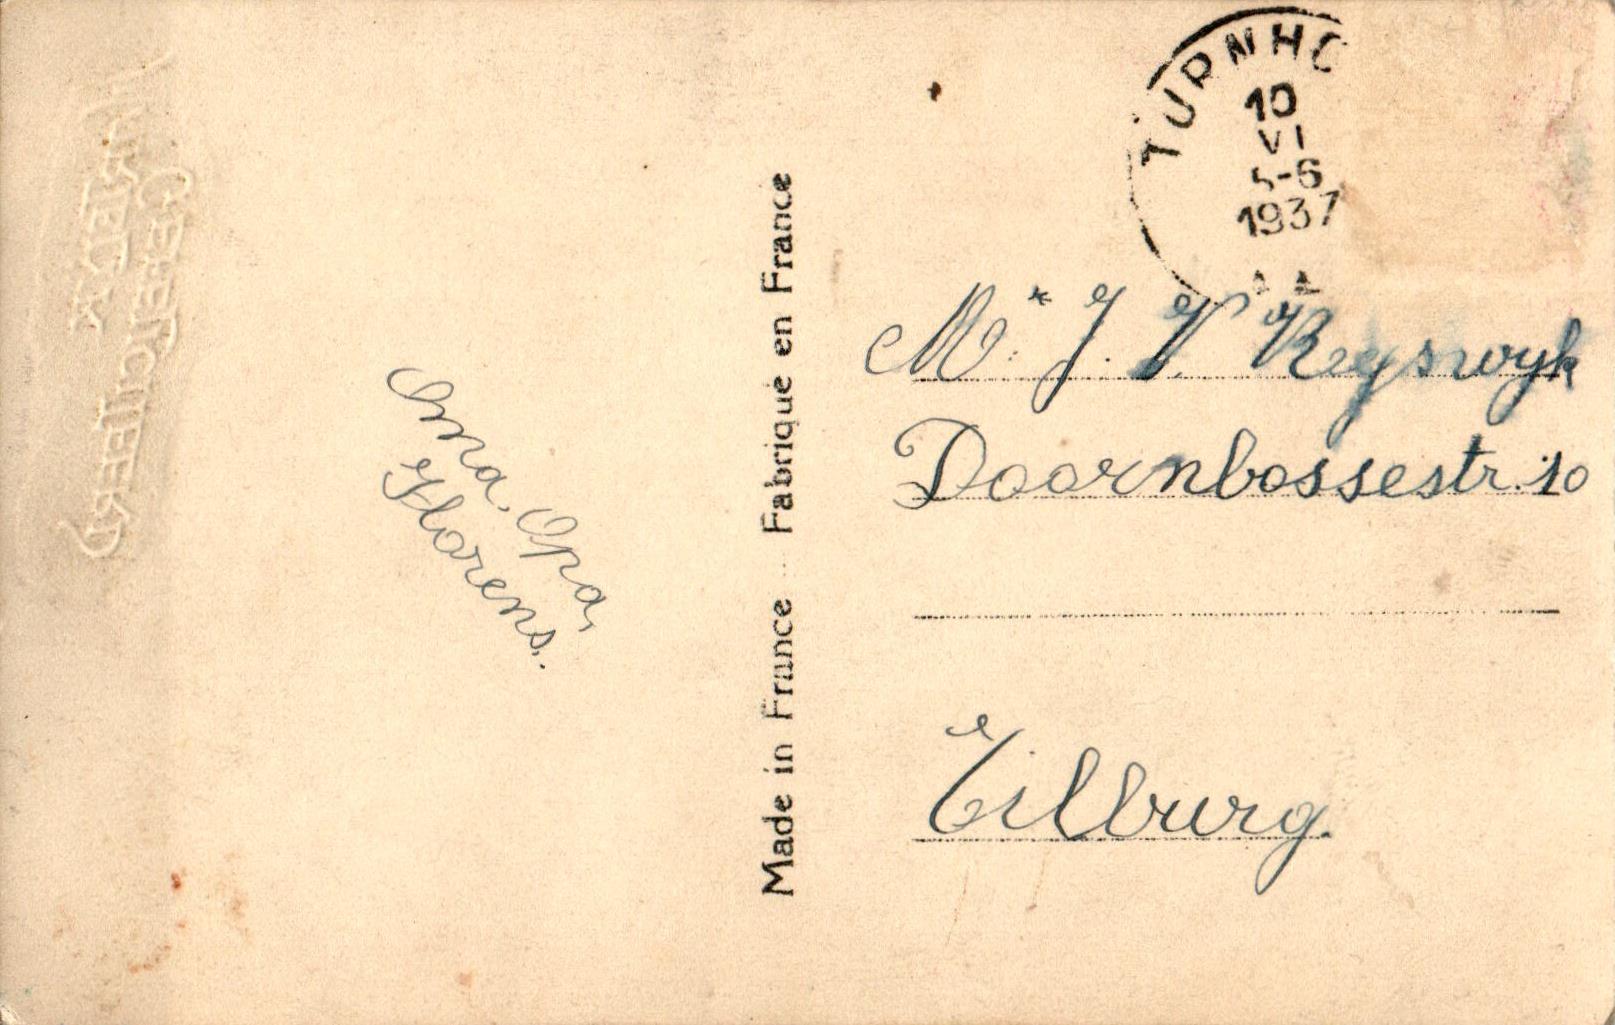 Oma, Opa,
Florens.
Made in France — Fabrique en France
TURNHO
10
VI
5-6
1937
Mr. J. V. Reyswyk
Doornbossestr. 10
Tilburg.